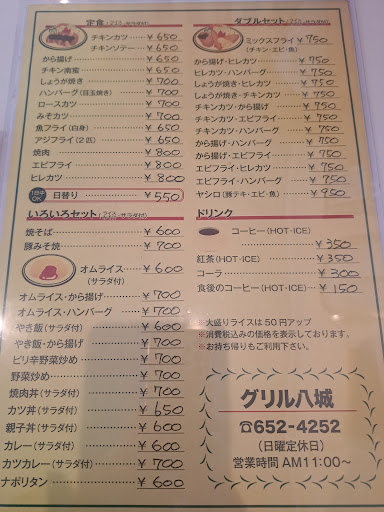 定食(ライス・サラダ付)
チキンカツ ¥650
チキンソテー ¥650
から揚げ ¥650
チキン南蛮 ¥650
しょうが焼き ¥700
ハンバーグ(目玉焼き) ¥700
ロースカツ ¥700
みそカツ ¥700
魚フライ(白身) ¥650
アジフライ(2匹) ¥650
焼肉 ¥800
エビフライ ¥800
ヒレカツ ¥800
日替り ¥550
いろいろセット(ライス・サラダ付)
焼そば ¥600
豚みそ焼 ¥700
オムライス ¥600
(サラダ付)
オムライス・から揚げ ¥700
オムライス・ハンバーグ ¥700
やき飯(サラダ付) ¥600
やき飯・から揚げ ¥700
ピリ辛野菜炒め ¥700
野菜炒め ¥700
焼肉丼(サラダ付) ¥700
カツ丼(サラダ付) ¥650
親子丼(サラダ付) ¥600
カレー(サラダ付) ¥600
カツカレー(サラダ付) ¥700
ナポリタン ¥600
ダブルセット(ライス・サラダ付)
ミックスフライ ¥750
(チキン・エビ・魚)
から揚げ・ヒレカツ ¥750
ヒレカツ・ハンバーグ ¥750
しょうが焼き・ヒレカツ ¥750
しょうが焼き・チキンカツ ¥750
チキンカツ・から揚げ ¥750
チキンカツ・エビフライ ¥750
チキンカツ・ハンバーグ ¥750
から揚げ・ハンバーグ ¥750
から揚げ・エビフライ ¥750
エビフライ・ヒレカツ ¥750
エビフライ・ハンバーグ ¥750
ヤシロ(豚テキ・エビ・魚) ¥950
ドリンク
コーヒー(HOT・ICE)
¥350
紅茶(HOT・ICE) ¥350
コーラ ¥300
食後のコーヒー(HOT・ICE) ¥150
※大盛りライスは50円アップ
※消費税込みの価格を表示しております。
※お持ち帰りもご利用下さい。
グリル八城
☎652-4252
(日曜定休日)
営業時間 AM11:00〜